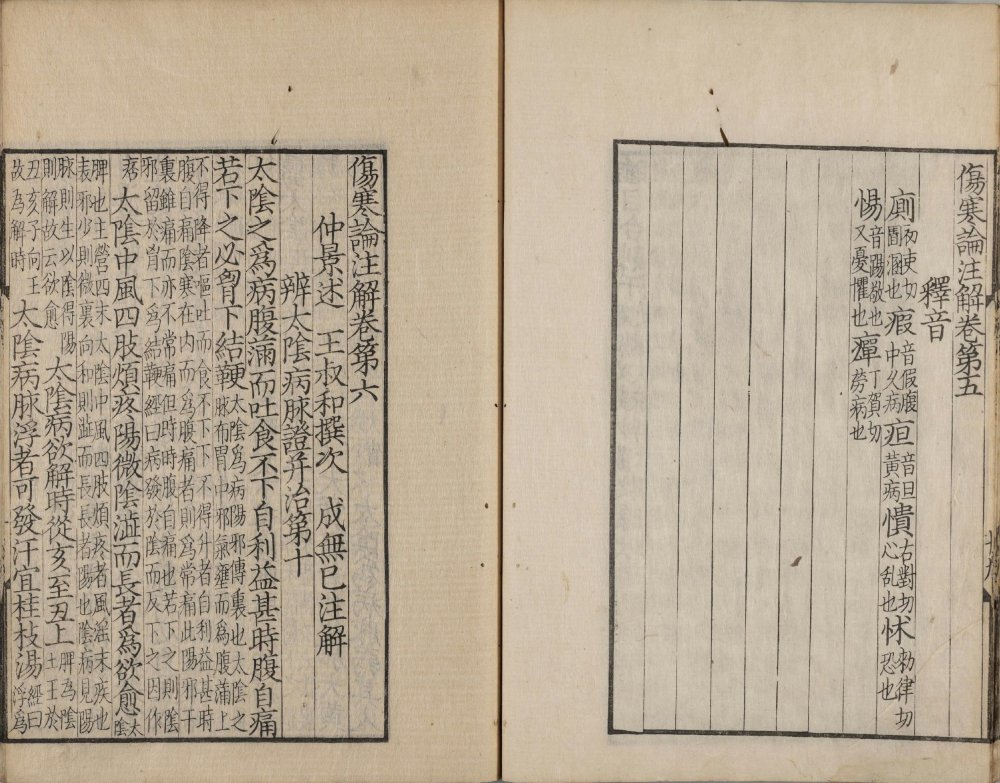 傷寒論注解卷第五
釋音
廁初吏切圊溷也瘕音假腹中久病疸音旦黃病憒古對切心乱也怵勑律切恐也
惕音踼敬也又憂懼也癉丁賀切勞病也
傷寒論注解卷第六
仲景述 王叔和撰次 成無已注解
辨太陰病脉證并治第十
太陰之爲病腹滿而吐食不下自利益甚時腹自痛
若下之必胷下結鞕太陰爲病陽邪傳裏也太陰之脉布胃中邪氣壅而爲腹滿上
不得降者嘔吐而食不下下不得升者自利益甚時
腹自痛陰寒在内而爲腹痛者則爲常痛此陽邪干
裏雖痛而亦不常痛但時時腹自痛也若下之則陰
邪留於胷下爲結鞕經曰病發於陰而反下之因作
痞 太陰中風四肢煩疼陽微陰澁而長者爲欲愈太陰
脾也主營四末太陰中風四肢煩疼者風淫末疾也
表邪少則微裏向和則澁而長長者陽也陰病見陽
脉則生以陰得陽則解故云欲愈 太陰病欲解時從亥至丑上脾爲陰土王於
丑亥子向王故爲解時 太陰病脉浮者可發汗宜桂枝湯經曰浮爲